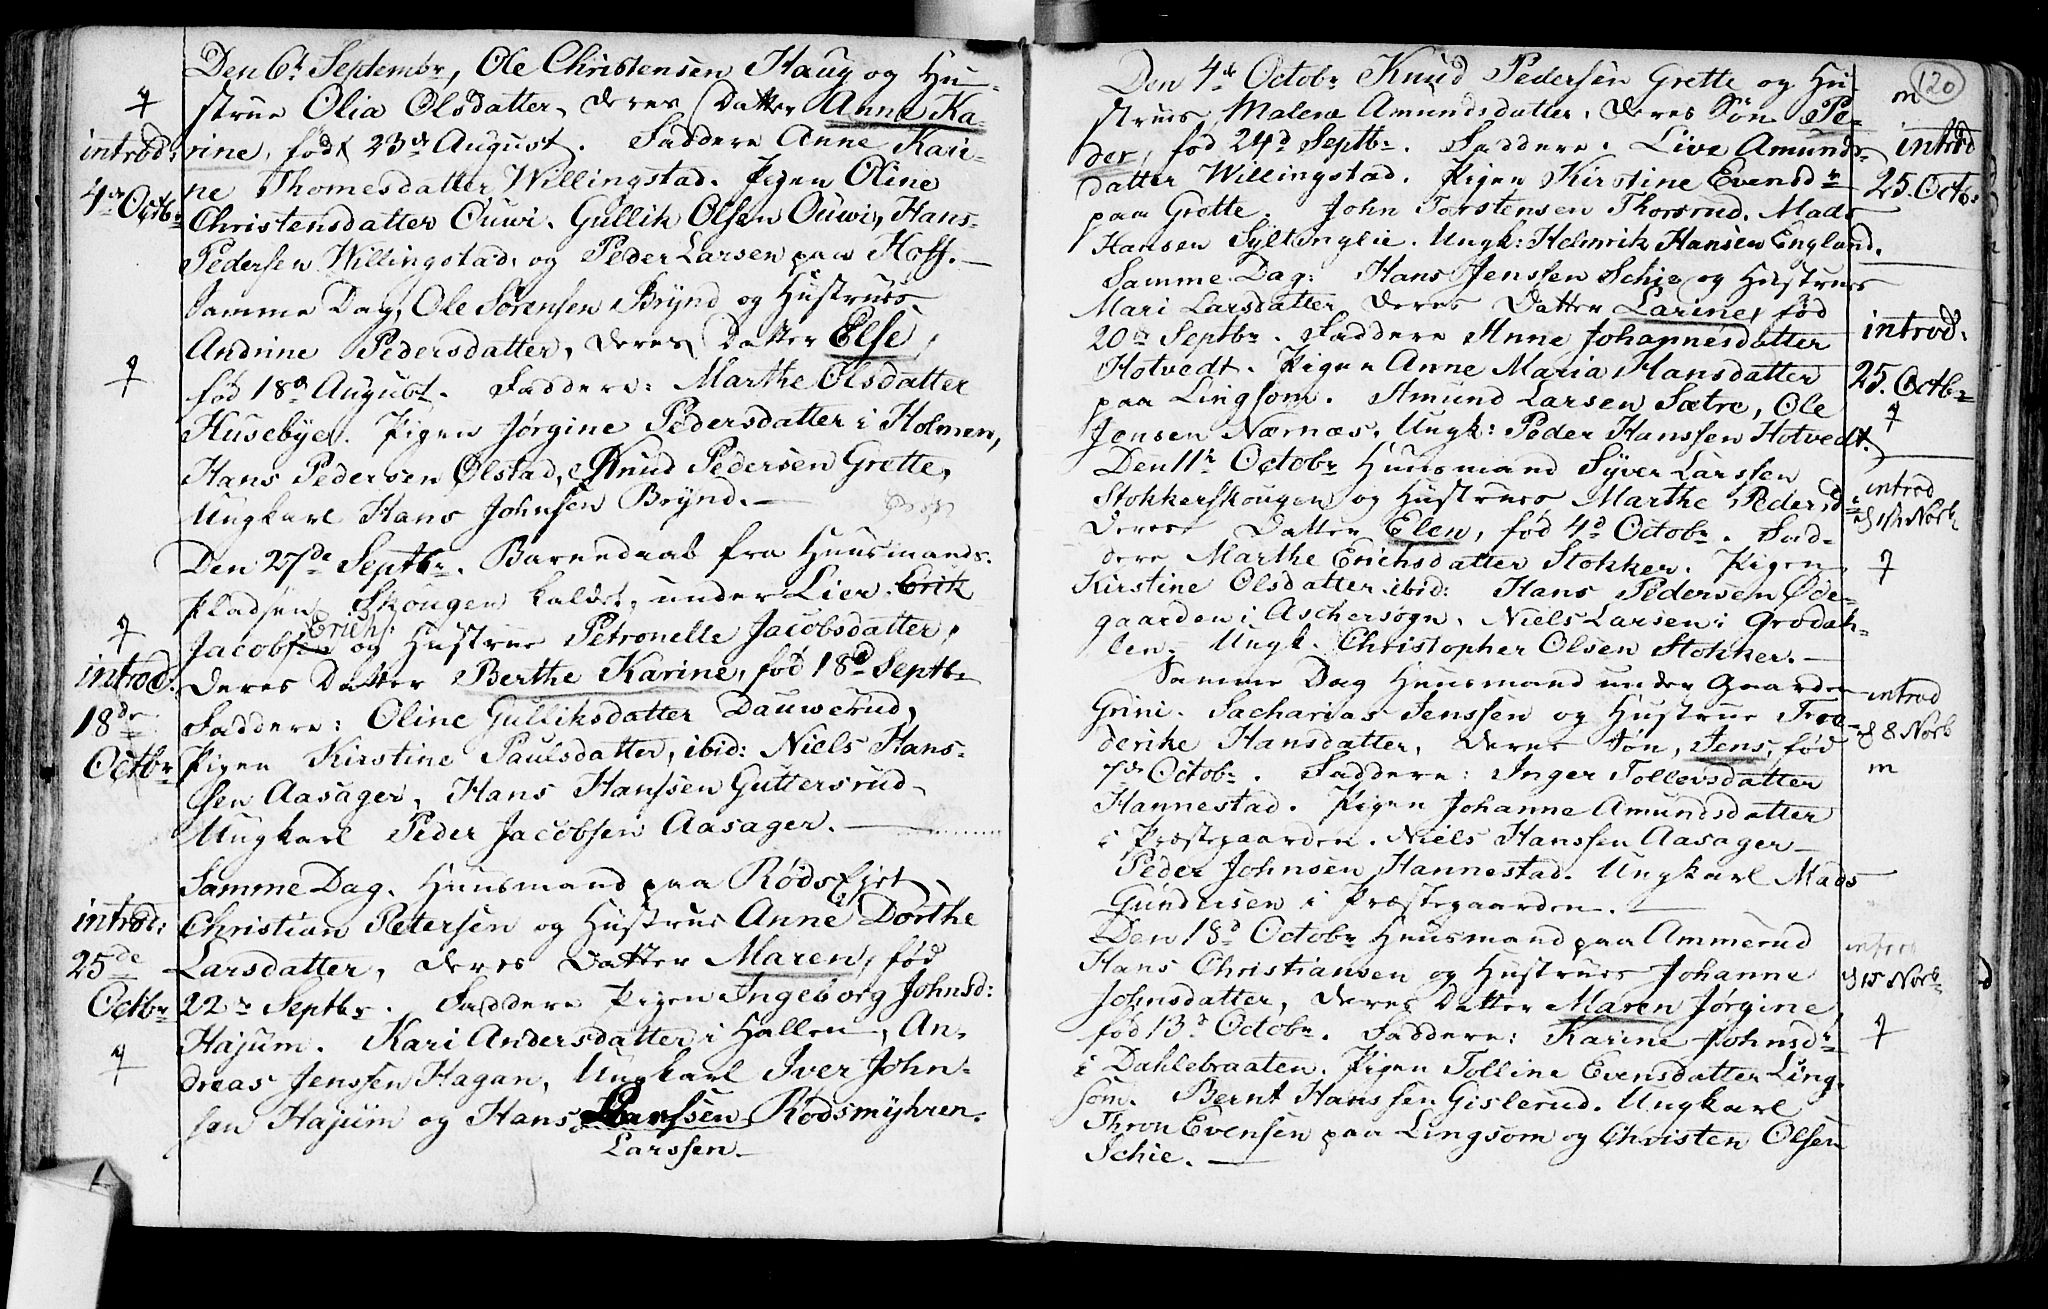 Den 6t Septembr, Ole Christensen Haug og Hu-
strue Olia Olsdatter, deres Datter Anne Ka-
introd: rine, født 23de August. Faddere Anne Kari-
4de Octbr ne Thomesdatter Willingstad. Pigen Oline
Christensdatter Ouwi. Gullik Olsen Ouwi, Hans
Pedersen Willingstad, og Peder Larsen paa Hoff. —
Samme Dag, Ole Sørensen Brynd og Hustrues
Andrine Pedersdatter, deres Datter Else,
fød 18d August. Faddere: Marthe Olsdatter
Husebye. Pigen Jørgine Pedersdatter i Holmen,
Hans Pedersen Ølstad, Knud Pedersen Grette,
Ungkarl Hans Johnsen Brynd. —
Den 27de Septbr. Barnedaab fra Huusmands-
Pladsen Skougen kaldet, under Lier. Erik
Jacobsen Erichs: og Hustrue Petronelle Jacobsdatter,
introd: deres Datter Berthe Karine, fød 18d Septbr
18de Faddere: Oline Gulliksdatter Dauwerud,
Octbr Pigen Kirstine Paulsdatter, ibid: Niels Hans-
sen Aasager, Hans Hanssen Guttersrud,
Ungkarl Peder Jacobsen Aasager. —
Samme Dag. Huusmand paa Rødsejet,
introd: Christian Petersen og Hustrue Anne Dorthe
25de Larsdatter, deres Datter Maren, fød
Octbr 22de Septbr. Faddere Pigen Ingeborg Johnsd:
Hajum. Kari Andersdatter i Hallen, An-
dreas Jenssen Hagan, Ungkarl Iver John-
sen Hajum og Hans Larssen Rødsmyhren.
Larssen. —
120
Den 4de Octobr Knud Pedersen Grette og Hu- m
strues Malene Amundsdatter, deres Søn Pe-
der, fød 24d Septbr. Faddere. Live Amunds- introd
datter Willingstad. Pigen Kirstine Evensdr 25. Octb.
paa Grette. John Torstensen Thorsrud. Mads
Hansen Syltinglie. Ungk: Helmrik Hansen England.
Samme Dag: Hans Jenssen Schie og Hustrues
Mari Larsdatter deres Datter Larine, fød
20d Septbr. Faddere Anne Johannesdatter introd:
Hotvedt. Pigen Anne Maria Hansdatter 25. Octbr
paa Lingsom. Amund Larsen Sætre, Ole
Jensen Nærnæs. Ungk: Peder Hanssen Hotvedt.
Den 11te Octobr Huusmand Syver Larssen
Stokkerskougen og Hustrues Marthe Pedersd introd
deres Datter Elen, fød 4d Octobr. Fad-
dere Marthe Erichsdatter Stokker. Pigen
Kirstine Olsdatter ibid: Hans Pedersen Øde-
gaarden i Aschersogn. Niels Larsen i Grodah-
len. Ungk. Christopher Olsen Stokker. —
Samme Dag Huusmand under Gaarden introd
Grini. Sacharias Jenssen og Hustrue Fre-
derike Hansdatter, deres Søn, Jens, fød d 8 Novb
7de Octobr. Faddere: Inger Tollevsdatter m
Hannestad. Pigen Johanne Amundsdatter
i Præstegaarden. Niels Hanssen Aasager
Peder Johnsen Hannestad. Ungkarl Mads
Gundersen i Præstegaarden. —
Den 18d Octobr Huusmand paa Ammerud introd
Hans Christiansen og Hustrues Johanne d 15 Novb
Johnsdatter, deres Datter Maren Jørgine,
fød 13d Octobr. Faddere: Karine Johnsdr
i Dahlebraaten. Pigen Tolline Evensdatter Ling-
som. Bernt Hanssen Gislerud. Ungkarl
Thron Evensen paa Lingsom og Christen Olsen
Schie. —